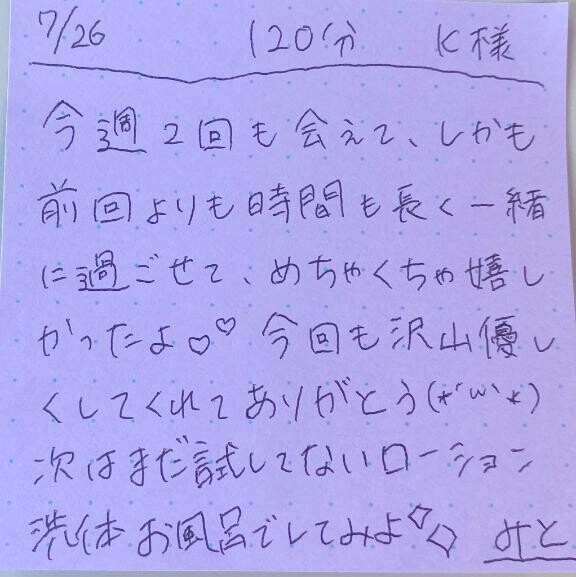 7/26 120分 K様
今週2回も会えて、しかも
前回よりも時間も長く一緒
に過ごせて、めちゃくちゃ嬉し
かったよ♡♡ 今回も沢山優し
くしてくれてありがとう(*´ω`*)
次はまだ試してないローション
洗体お風呂でしてみよ◇◇ みと